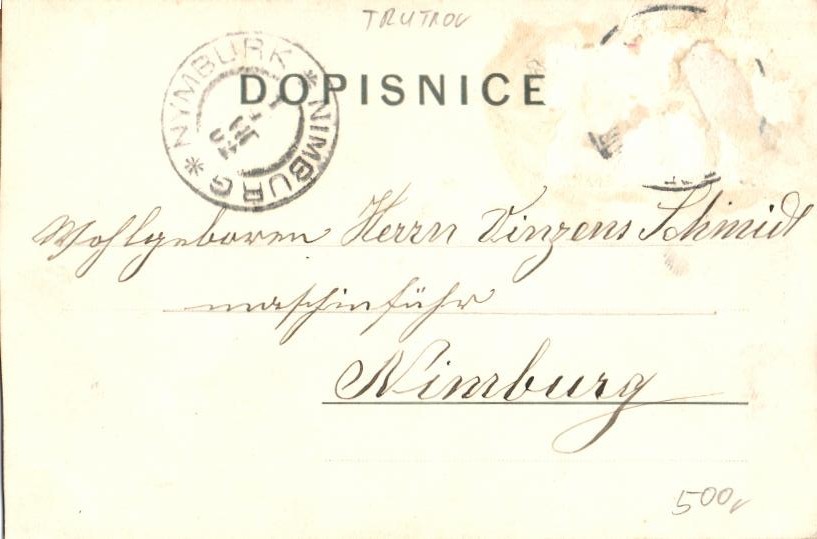 TRUTNOV
DOPISNICE
* NYMBURK * NIMBURG
Wohlgeboren Herrn Vinzens Schmidt
maschinführ
Nimburg
500